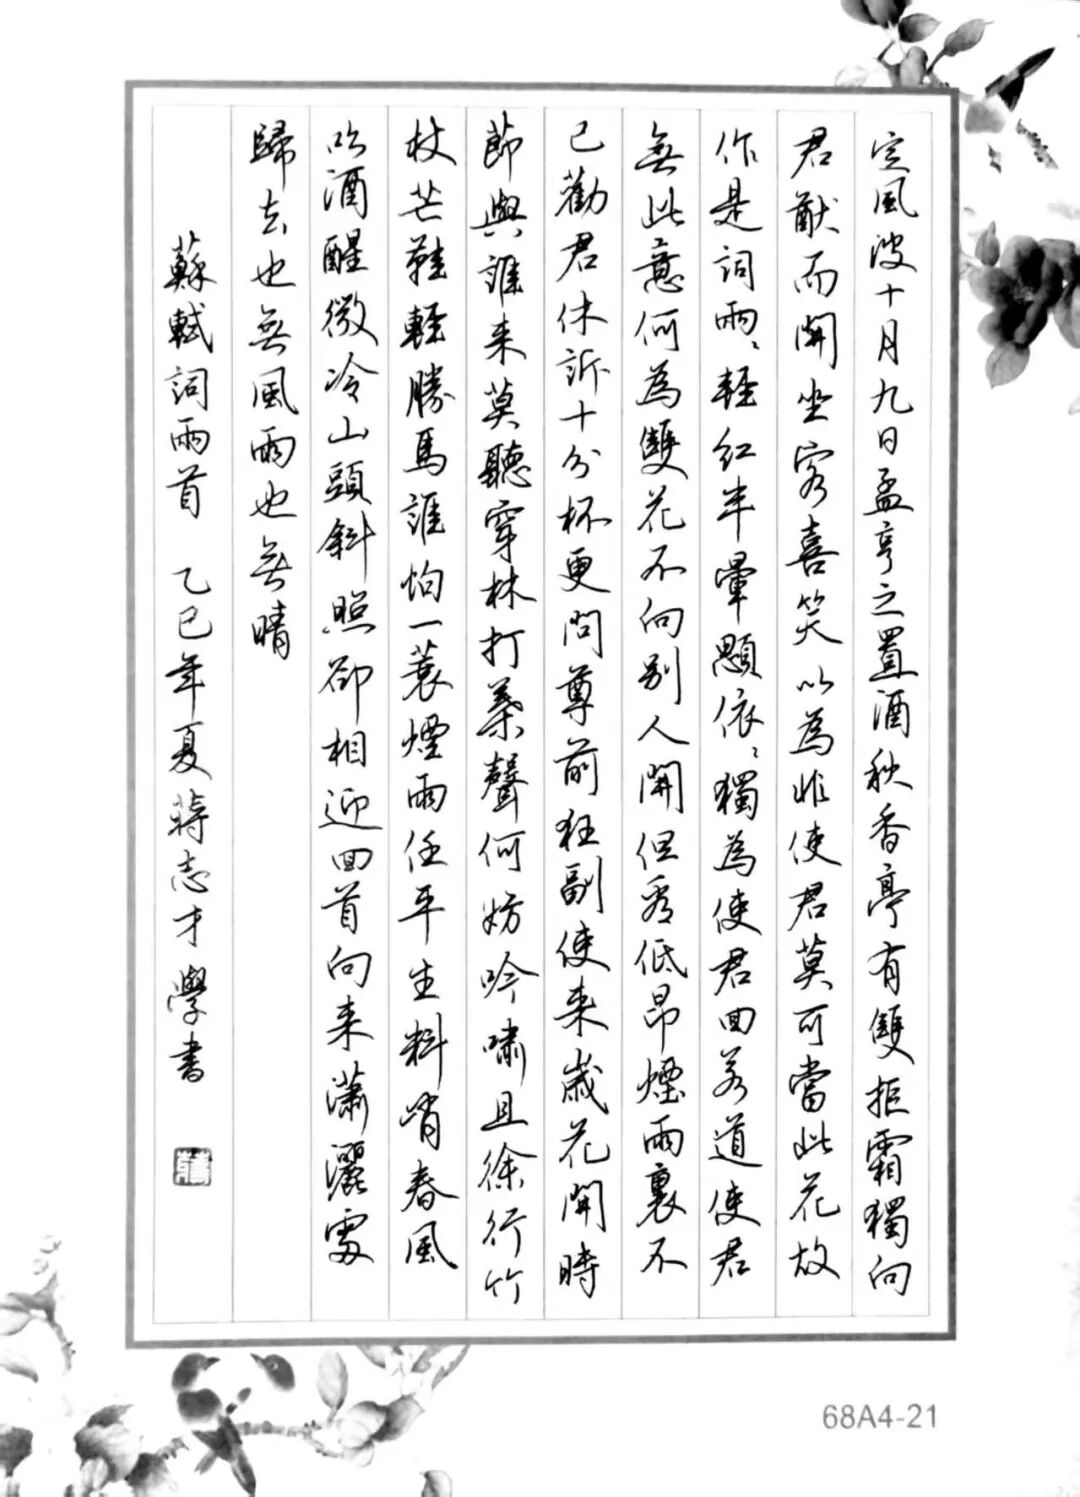 定風波十月九日孟亨之置酒秋香亭有雙拒霜獨向
君猷而開坐客喜笑以為非使君莫可當此花故
作是詞兩、輕紅半暈顋依、獨為使君回若道使君
無此意何為雙花不向別人開但看低昂煙雨裏不
已勸君休訴十分杯更問尊前狂副使来歲花開時
節與誰来莫聽穿林打葉聲何妨吟嘯且徐行竹
杖芒鞋輕勝馬誰怕一蓑煙雨任平生料峭春風
吹酒醒微冷山頭斜照卻相迎回首向来瀟灑處
歸去也無風雨也無晴
蘇軾詞兩首 乙巳年夏蔣志才學書
68A4-21